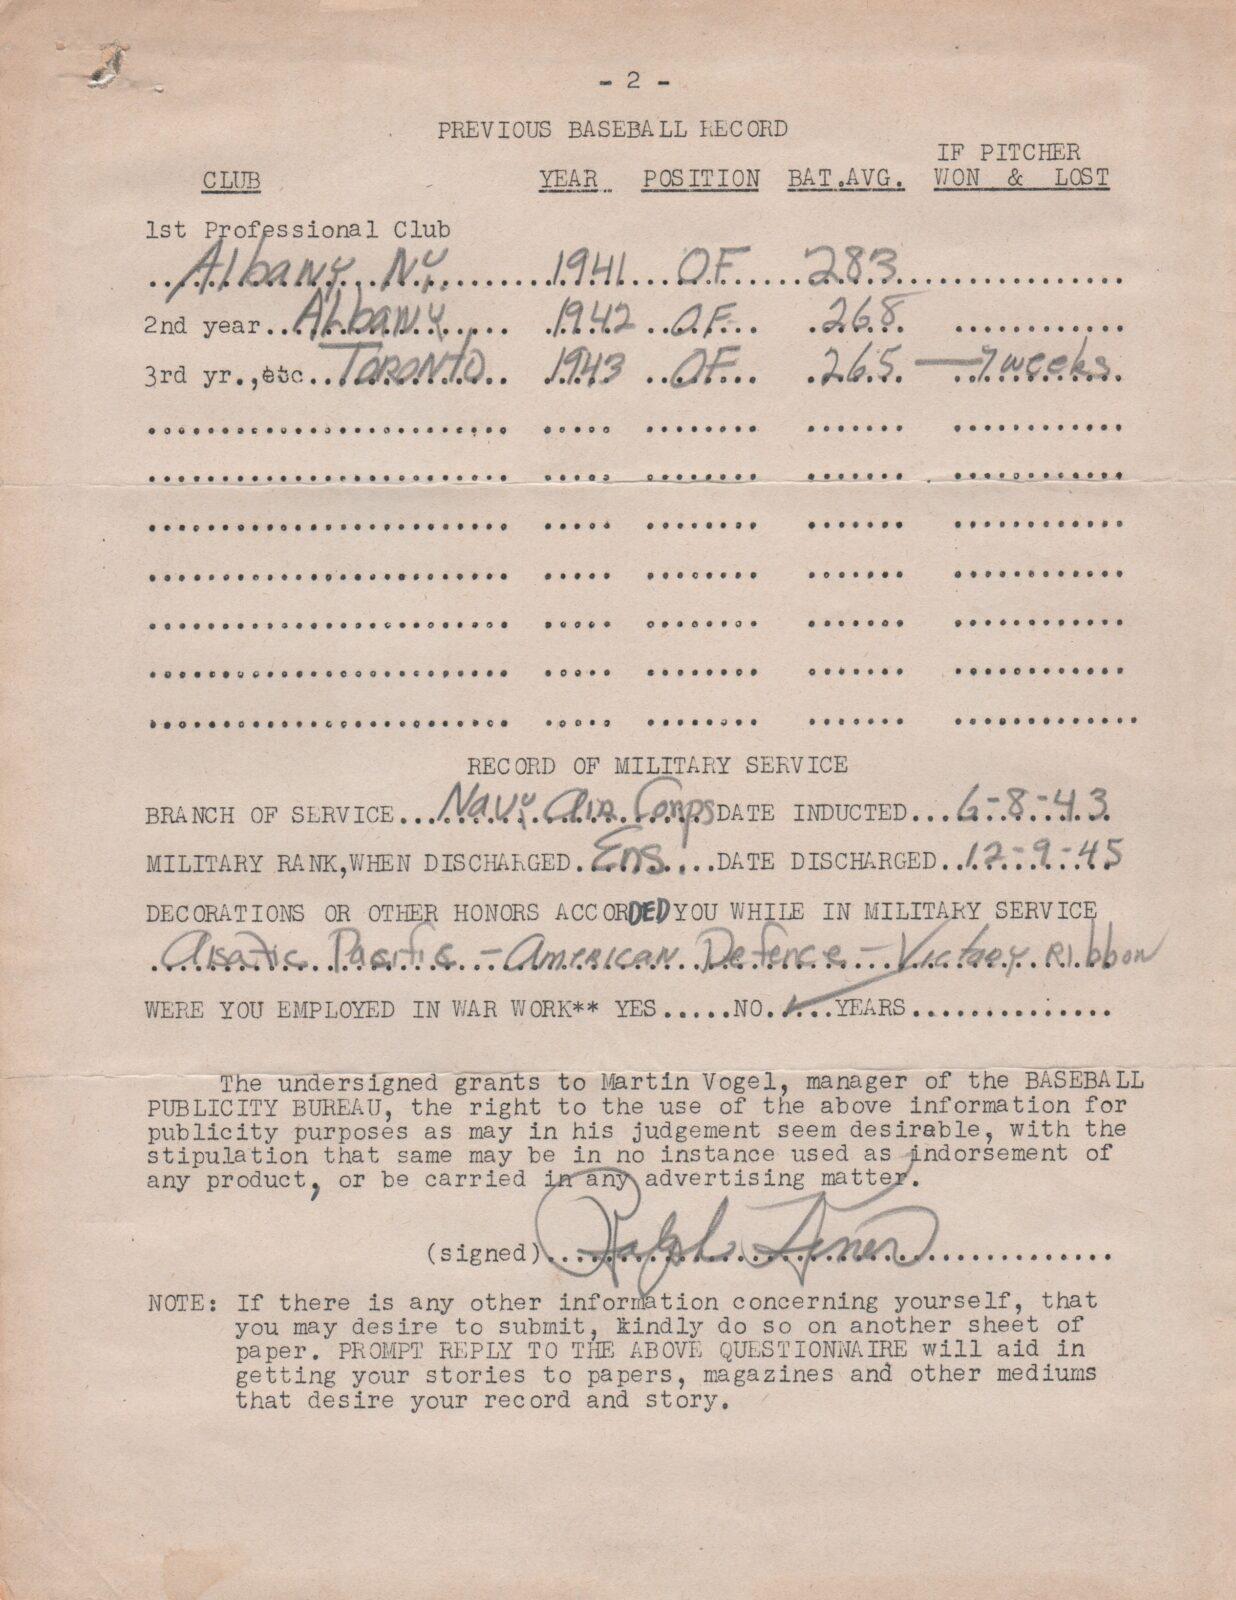 - 2 -
PREVIOUS BASEBALL RECORD
IF PITCHER
CLUB YEAR POSITION BAT.AVG. WON & LOST
1st Professional Club
Albany N.Y. 1941 OF 283
2nd year...Albany 1942 OF 268
3rd yr.,etc..Toronto 1943 OF 265 — 7 weeks
RECORD OF MILITARY SERVICE
BRANCH OF SERVICE...Navy Air Corps DATE INDUCTED...6-8-43
MILITARY RANK,WHEN DISCHARGED.Ens....DATE DISCHARGED..12-9-45
DECORATIONS OR OTHER HONORS ACCORDED YOU WHILE IN MILITARY SERVICE
Aisatic Pacific - American Defence - Victory Ribbon
WERE YOU EMPLOYED IN WAR WORK** YES.....NO.✓...YEARS..............
The undersigned grants to Martin Vogel, manager of the BASEBALL
PUBLICITY BUREAU, the right to the use of the above information for
publicity purposes as may in his judgement seem desirable, with the
stipulation that same may be in no instance used as indorsement of
any product, or be carried in any advertising matter.
(signed) Ralph
NOTE: If there is any other information concerning yourself, that
you may desire to submit, kindly do so on another sheet of
paper. PROMPT REPLY TO THE ABOVE QUESTIONNAIRE will aid in
getting your stories to papers, magazines and other mediums
that desire your record and story.